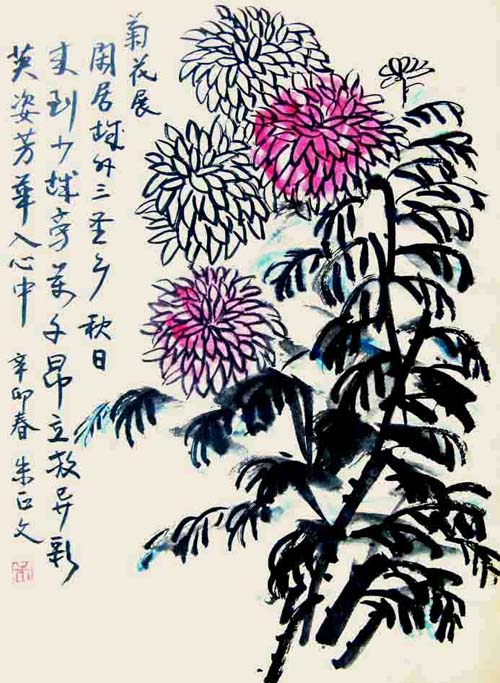 菊花展
閑居城外三圣乡秋日
来到少城旁萬千昂立放异彩
英姿芳華入心中 辛卯春 朱正文